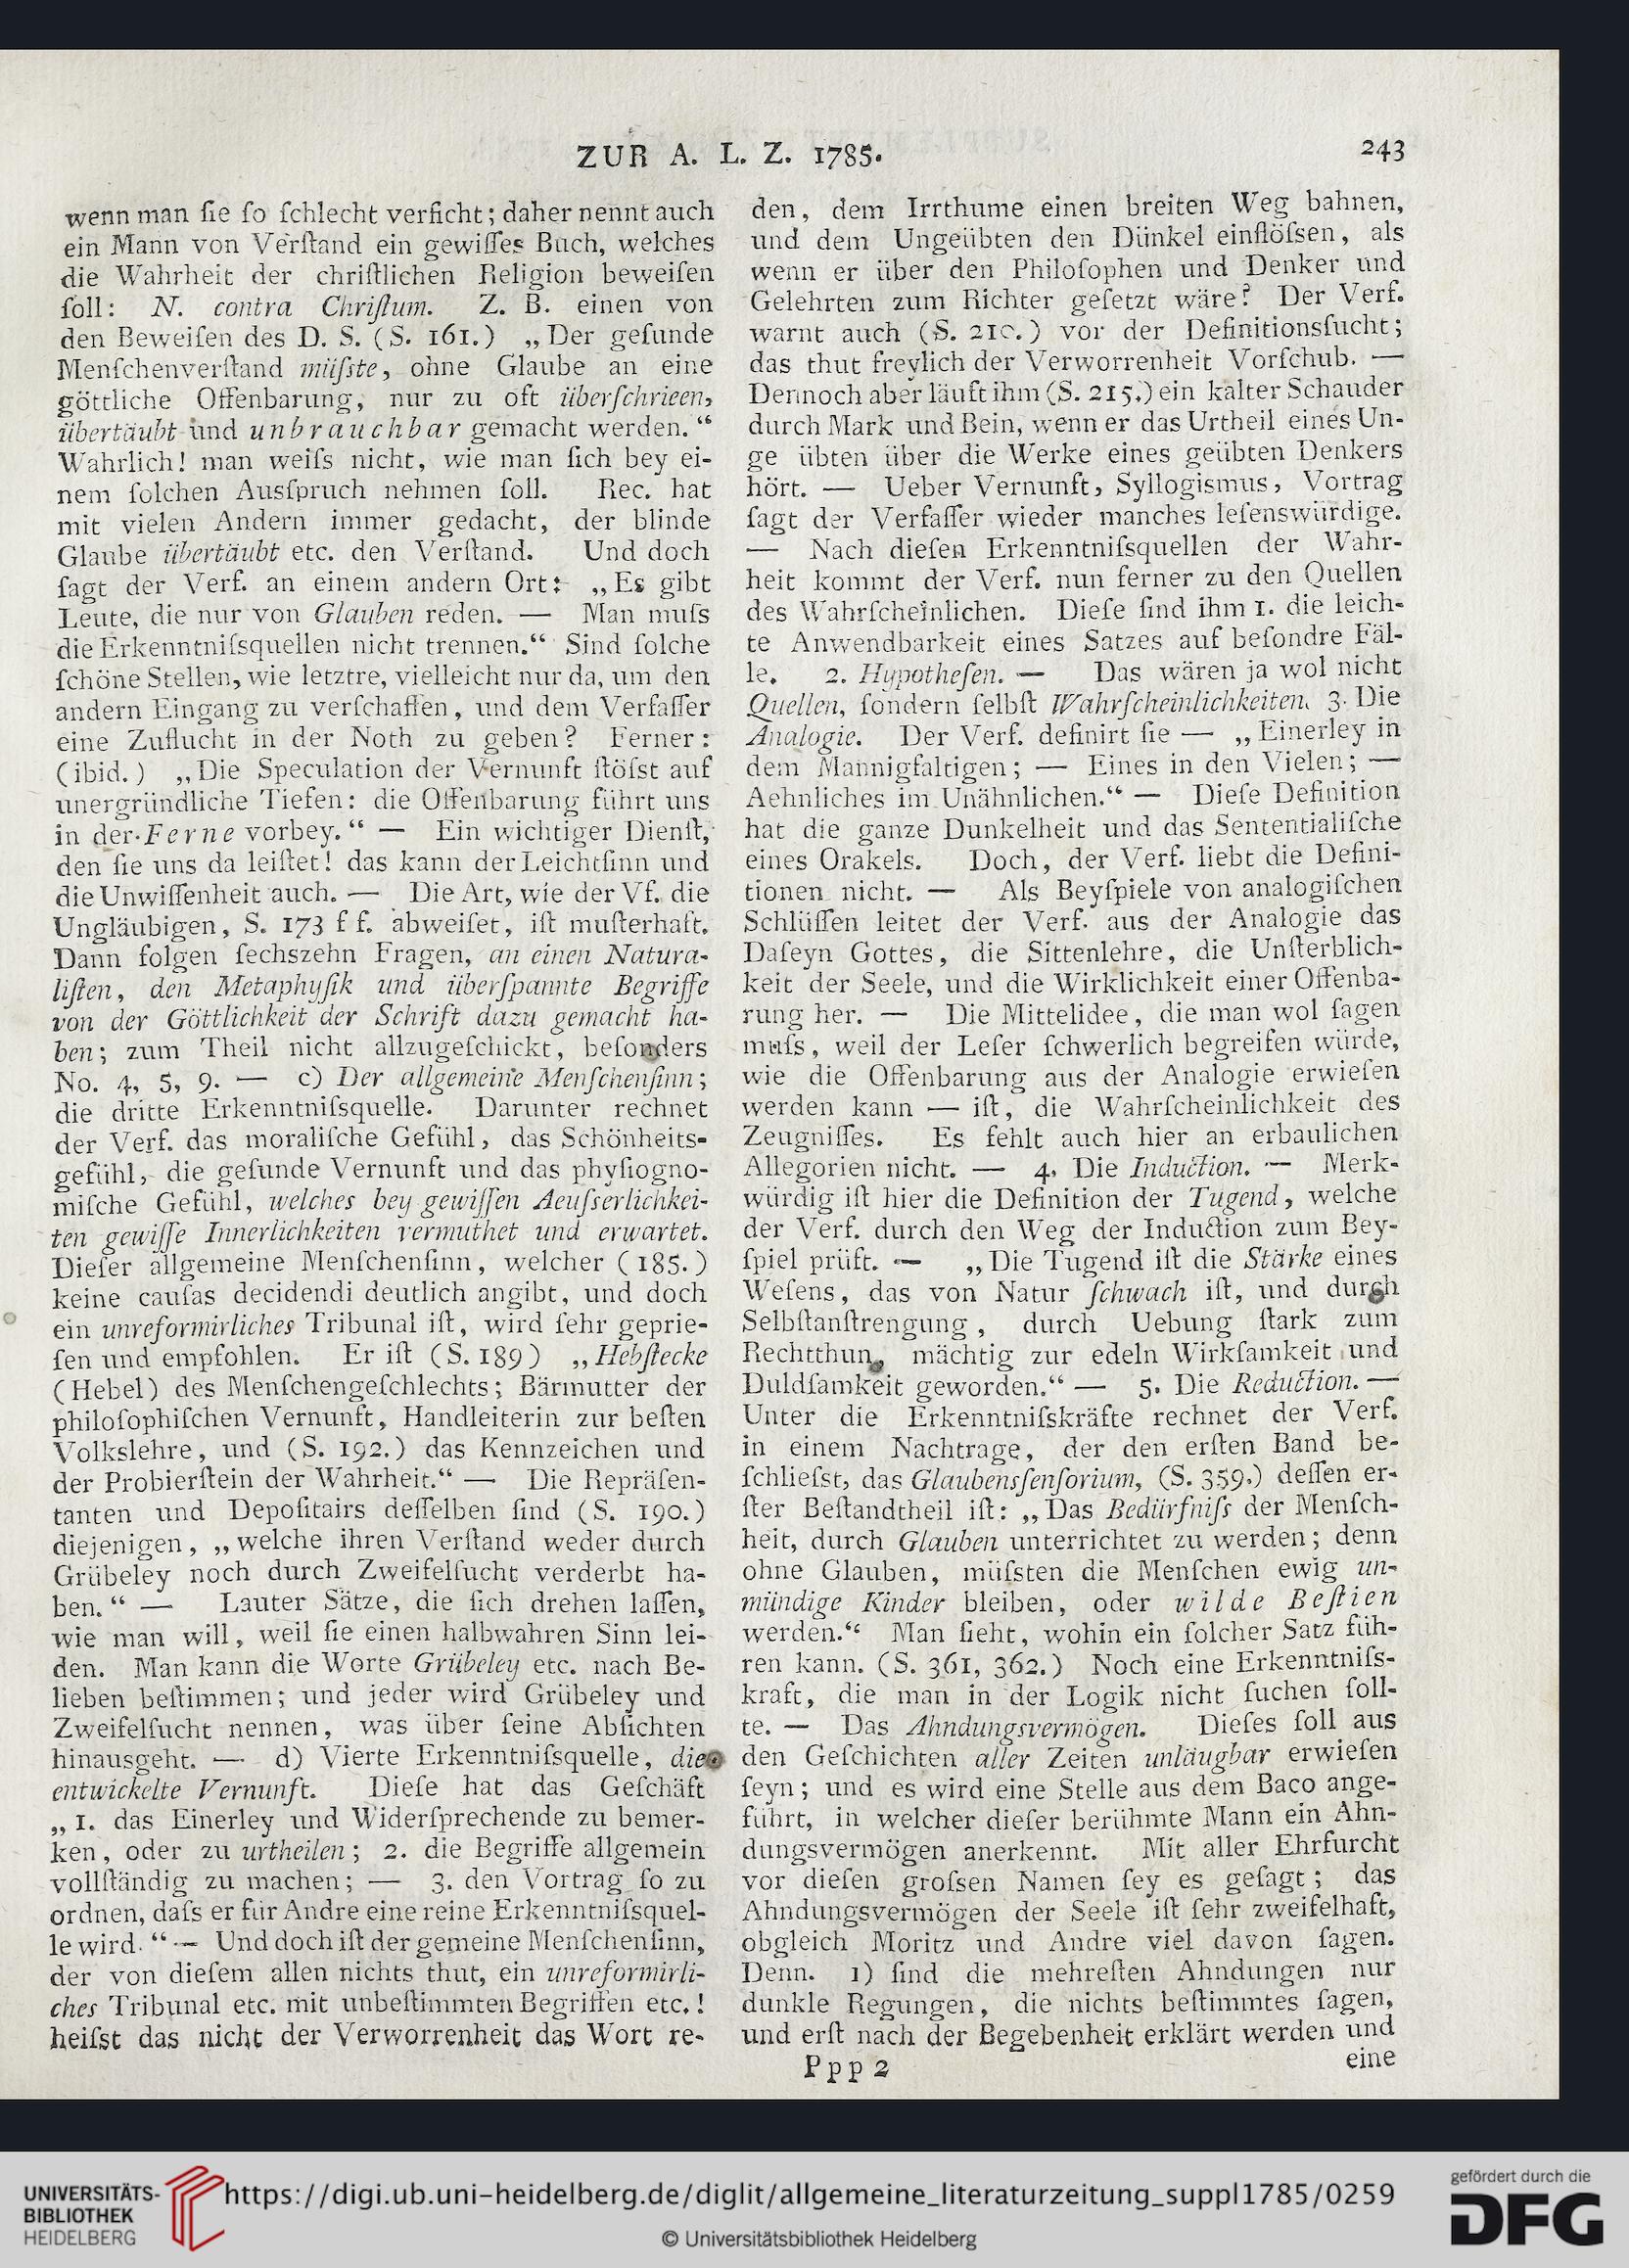 ZUR A. L. Z. 1785.
243
wenn man ſie ſo ſchlecht verficht; daher nennt auch
ein Mann von Verſtand ein gewiſſes Buch, welches
die Wahrheit der chriſtlichen Religion beweiſen
ſoll: N. contra Chriſtum. Z. B. einen von
den Beweiſen des D. S. (S. 161.) „Der geſunde
Menſchenverſtand müſste, ohne Glaube an eine
göttliche Offenbarung, nur zu oft überſchrieen,
übertäubt und unbrauchbar gemacht werden.“
Wahrlich! man weiſs nicht, wie man ſich bey ei-
nem ſolchen Ausſpruch nehmen ſoll. Rec. hat
mit vielen Andern immer gedacht, der blinde
Glaube übertäubt etc. den Verſtand. Und doch
ſagt der Verf. an einem andern Ort: „Es gibt
Leute, die nur von Glauben reden. — Man muſs
die Erkenntniſsquellen nicht trennen.“ Sind ſolche
ſchöne Stellen, wie letztre, vielleicht nur da, um den
andern Eingang zu verſchaffen, und dem Verfaſſer
eine Zuflucht in der Noth zu geben? Ferner:
(ibid.) „Die Speculation der Vernunft ſtöſst auf
unergründliche Tiefen: die Offenbarung führt uns
in der Ferne vorbey.“ — Ein wichtiger Dienſt,
den ſie uns da leiſtet! das kann der Leichtſinn und
die Unwiſſenheit auch. — Die Art, wie der Vf. die
Ungläubigen, S. 173 f f. abweiſet, iſt muſterhaft.
Dann folgen ſechszehn Fragen, an einen Natura-
liſten, den Metaphyſik und überſpannte Begriffe
von der Göttlichkeit der Schrift dazu gemacht ha-
ben; zum Theil nicht allzugeſchickt, beſonders
No. 4, 5, 9. — c) Der allgemeine Menſchenſinn;
die dritte Erkenntniſsquelle. Darunter rechnet
der Verf. das moraliſche Gefühl, das Schönheits-
gefühl, die geſunde Vernunft und das phyſiogno-
miſche Gefühl, welches bey gewiſſen Aeuſserlichkei-
ten gewiſſe Innerlichkeiten vermuthet und erwartet.
Dieſer allgemeine Menſchenſinn, welcher (185.)
keine cauſas decidendi deutlich angibt, und doch
ein unreformirliches Tribunal iſt, wird ſehr geprie-
ſen und empfohlen. Er iſt (S. 189) „Hebſtecke
(Hebel) des Menſchengeſchlechts; Bärmutter der
philoſophiſchen Vernunft, Handleiterin zur beſten
Volkslehre, und (S. 192.) das Kennzeichen und
der Probierſtein der Wahrheit.“ — Die Repräſen-
tanten und Depoſitairs deſſelben ſind (S. 190.)
diejenigen, „welche ihren Verſtand weder durch
Grübeley noch durch Zweifelſucht verderbt ha-
ben.“ — Lauter Sätze, die ſich drehen laſſen,
wie man will, weil ſie einen halbwahren Sinn lei-
den. Man kann die Worte Grübeley etc. nach Be-
lieben beſtimmen; und jeder wird Grübeley und
Zweifelſucht nennen, was über ſeine Abſichten
hinausgeht. — d) Vierte Erkenntniſsquelle, die
entwickelte Vernunft. Dieſe hat das Geſchäft
„1. das Einerley und Widerſprechende zu bemer-
ken, oder zu urtheilen; 2. die Begriffe allgemein
vollſtändig zu machen; — 3. den Vortrag ſo zu
ordnen, daſs er für Andre eine reine Erkenntniſsquel-
le wird.“ — Und doch iſt der gemeine Menſchenſinn,
der von dieſem allen nichts thut, ein unreformirli-
ches Tribunal etc. mit unbeſtimmten Begriffen etc.!
heiſst das nicht der Verworrenheit das Wort re-
den, dem Irrthume einen breiten Weg bahnen,
und dem Ungeübten den Dünkel einflöſsen, als
wenn er über den Philoſophen und Denker und
Gelehrten zum Richter geſetzt wäre? Der Verf.
warnt auch (S. 210.) vor der Definitionsſucht;
das thut freylich der Verworrenheit Vorſchub. —
Dennoch aber läuft ihm (S. 215.) ein kalter Schauder
durch Mark und Bein, wenn er das Urtheil eines Un-
ge übten über die Werke eines geübten Denkers
hört. — Ueber Vernunft, Syllogismus, Vortrag
ſagt der Verfaſſer wieder manches leſenswürdige.
— Nach dieſen Erkenntniſsquellen der Wahr-
heit kommt der Verf. nun ferner zu den Quellen
des Wahrſcheinlichen. Dieſe ſind ihm 1. die leich-
te Anwendbarkeit eines Satzes auf beſondre Fäl-
le. 2. Hypotheſen. — Das wären ja wol nicht
Quellen, ſondern ſelbſt Wahrſcheinlichkeiten. 3. Die
Analogie. Der Verf. definirt ſie — „Einerley in
dem Mannigfaltigen; — Eines in den Vielen; —
Aehnliches im Unähnlichen.“ — Dieſe Definition
hat die ganze Dunkelheit und das Sententialiſche
eines Orakels. Doch, der Verf. liebt die Defini-
tionen nicht. — Als Beyſpiele von analogiſchen
Schlüſſen leitet der Verf. aus der Analogie das
Daſeyn Gottes, die Sittenlehre, die Unſterblich-
keit der Seele, und die Wirklichkeit einer Offenba-
rung her. — Die Mittelidee, die man wol ſagen
muſs, weil der Leſer ſchwerlich begreifen würde,
wie die Offenbarung aus der Analogie erwieſen
werden kann — iſt, die Wahrſcheinlichkeit des
Zeugniſſes. Es fehlt auch hier an erbaulichen
Allegorien nicht. — 4. Die Induction. — Merk-
würdig iſt hier die Definition der Tugend, welche
der Verf. durch den Weg der Induction zum Bey-
ſpiel prüft. — „Die Tugend iſt die Stärke eines
Weſens, das von Natur ſchwach iſt, und durch
Selbſtanſtrengung, durch Uebung ſtark zum
Rechtthun, mächtig zur edeln Wirkſamkeit und
Duldſamkeit geworden.“ — 5. Die Reduction. —
Unter die Erkenntniſskräfte rechnet der Verf.
in einem Nachtrage, der den erſten Band be-
ſchlieſst, das Glaubensſenſorium, (S. 359.) deſſen er-
ſter Beſtandtheil iſt: „Das Bedürfniſs der Menſch-
heit, durch Glauben unterrichtet zu werden; denn
ohne Glauben, müſsten die Menſchen ewig un-
mündige Kinder bleiben, oder wilde Beſtien
werden.“ Man ſieht, wohin ein ſolcher Satz füh-
ren kann. (S. 361, 362.) Noch eine Erkenntniſs-
kraft, die man in der Logik nicht ſuchen ſoll-
te. — Das Ahndungsvermögen. Dieſes ſoll aus
den Geſchichten aller Zeiten unläugbar erwieſen
ſeyn; und es wird eine Stelle aus dem Baco ange-
führt, in welcher dieſer berühmte Mann ein Ahn-
dungsvermögen anerkennt. Mit aller Ehrfurcht
vor dieſen groſsen Namen ſey es geſagt; das
Ahndungsvermögen der Seele iſt ſehr zweifelhaft,
obgleich Moritz und Andre viel davon ſagen.
Denn. 1) ſind die mehreſten Ahndungen nur
dunkle Regungen, die nichts beſtimmtes ſagen,
und erſt nach der Begebenheit erklärt werden und
Ppp 2
eine
UNIVERSITÄTS-
BIBLIOTHEK
HEIDELBERG
https://digi.ub.uni-heidelberg.de/diglit/allgemeine_literaturzeitung_suppl1785/0259
© Universitätsbibliothek Heidelberg
gefördert durch die
DFG